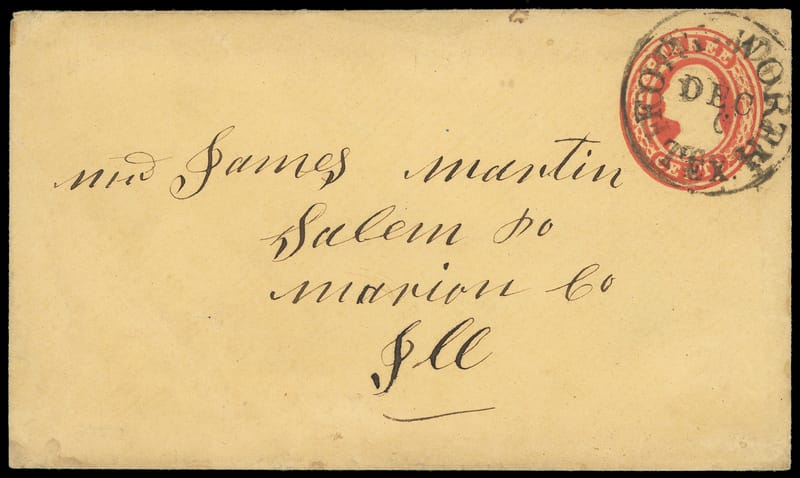 THREE
FORT WORTH
DEC
6
TEX.
CENTS
Mrs James Martin
Salem Po
Marion Co
Ill